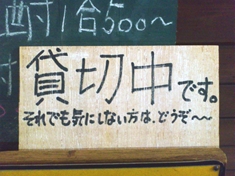 酎1合500〜
貸切中です。
それでも気にしない方は、どうぞ〜〜